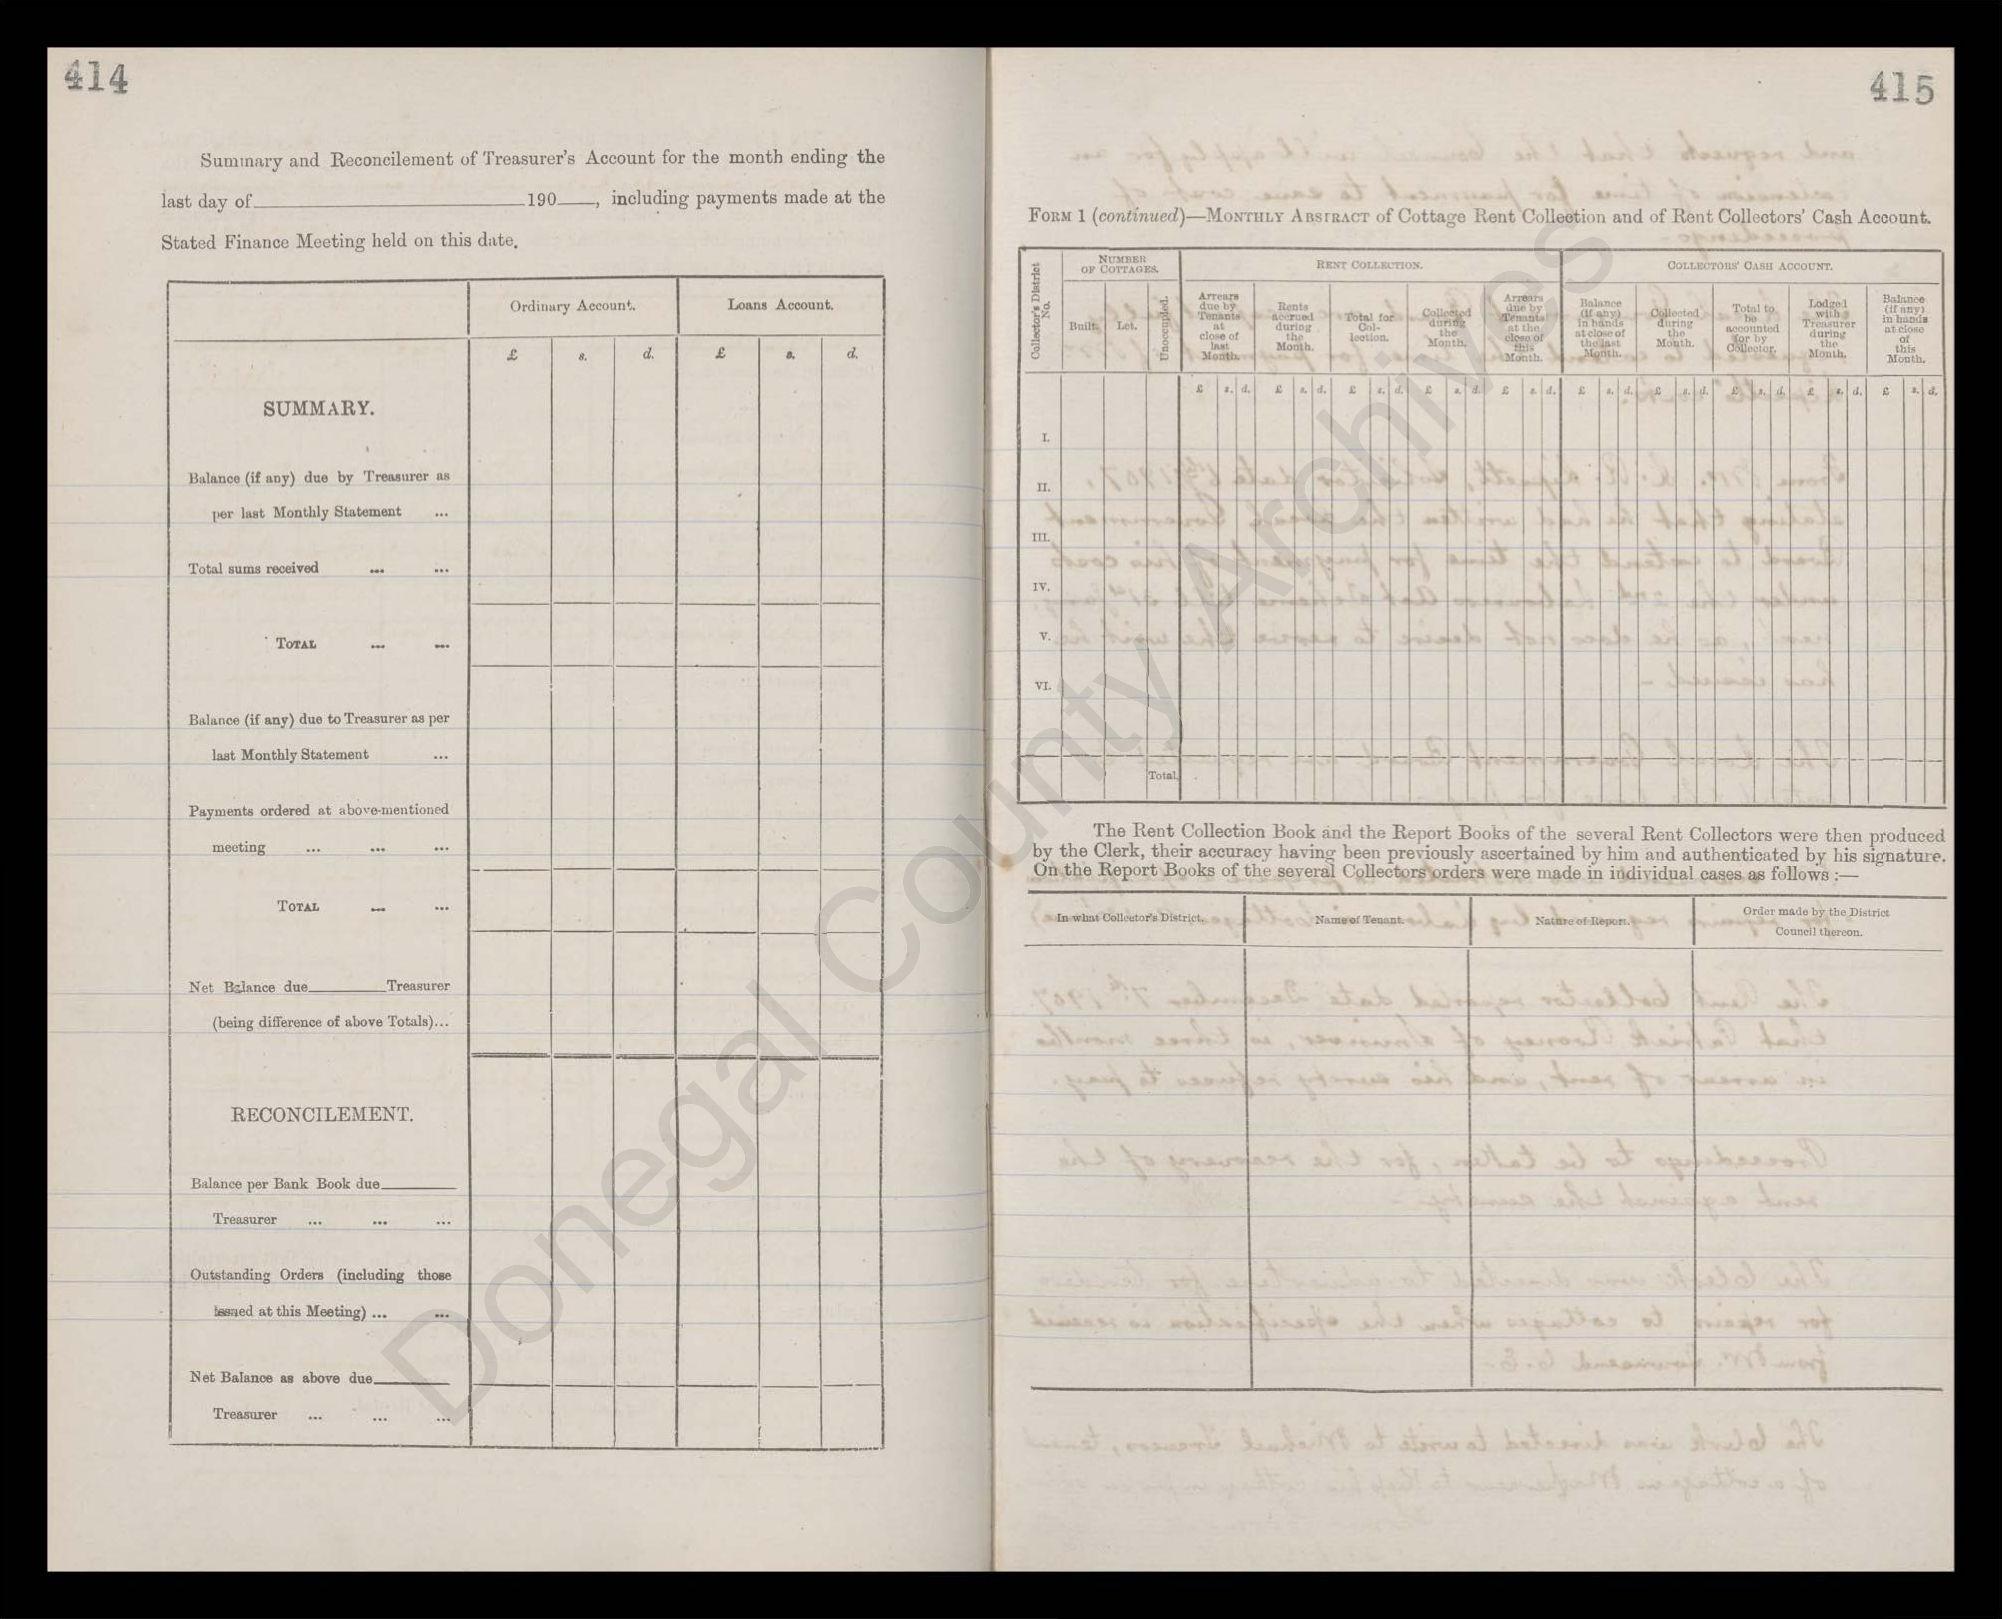 414
Summary and Reconcilement of Treasurer's Account for the month ending the
last day of 190 , including payments made at the
Stated Finance Meeting held on this date.
Ordinary Account. Loans Account.
£ s. d. £ s. d.
SUMMARY.
Balance (if any) due by Treasurer as
per last Monthly Statement ...
Total sums received ... ...
TOTAL ... ...
Balance (if any) due to Treasurer as per
last Monthly Statement ...
Payments ordered at above-mentioned
meeting ... ... ...
TOTAL ... ...
Net Balance due Treasurer
(being difference of above Totals)...
RECONCILEMENT.
Balance per Bank Book due
Treasurer ... ... ...
Outstanding Orders (including those
issued at this Meeting) ... ...
Net Balance as above due
Treasurer ... ... ...
415
FORM 1 (continued)—MONTHLY ABSTRACT of Cottage Rent Collection and of Rent Collectors' Cash Account.
Collector's District No.
NUMBER OF COTTAGES.
RENT COLLECTION.
COLLECTORS' CASH ACCOUNT.
Built.
Let.
Unoccupied.
Arrears due by Tenants at close of last Month.
Rents accrued during the Month.
Total for Col-lection.
Collected during the Month.
Arrears due by Tenants at the close of this Month.
Balance (if any) in hands at close of the last Month.
Collected during the Month.
Total to be accounted for by Collector.
Lodged with Treasurer during the Month.
Balance (if any) in hands at close of this Month.
£ s. d. £ s. d. £ s. d. £ s. d. £ s. d. £ s. d. £ s. d. £ s. d. £ s. d. £ s. d.
I.
II.
III.
IV.
V.
VI.
Total.
The Rent Collection Book and the Report Books of the several Rent Collectors were then produced
by the Clerk, their accuracy having been previously ascertained by him and authenticated by his signature.
On the Report Books of the several Collectors orders were made in individual cases as follows :—
In what Collector's District. Name of Tenant. Nature of Report. Order made by the District Council thereon.
Donegal County Archives